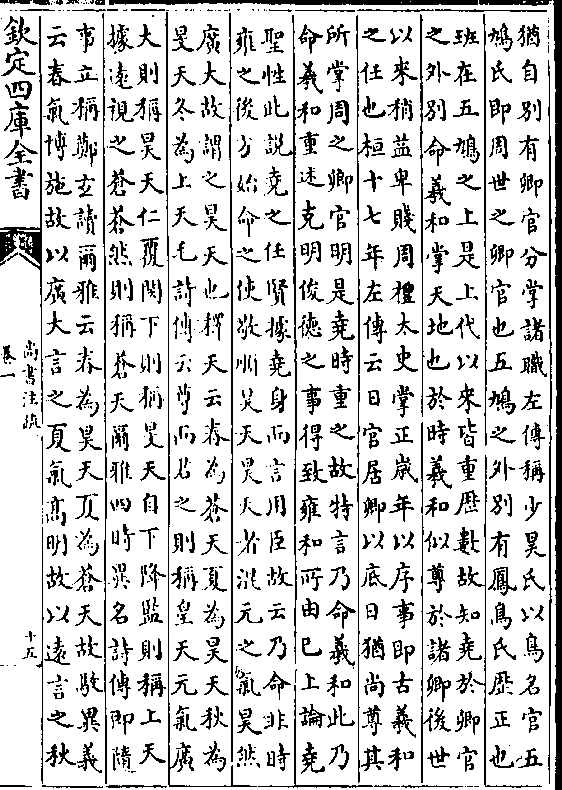 猶自別有卿官分掌諸職左傳稱少昊氏以鳥名官五
鳩氏即周世之卿官也五鳩之外別有鳳鳥氏歴正也
班在五鳩之上是上代以來皆重歴數故知堯於卿官
之外別命羲和掌天地也於時羲和似尊於諸卿後世
以來稍益卑賤周禮太史掌正歲年以序事即古羲和
之任也桓十七年左傳云日官居卿以底日猶尚尊其
所掌周之卿官明是堯時重之故特言乃命羲和此乃
命羲和重述克明俊德之事得致雍和所由已上論堯
聖性此說堯之任賢據堯身而言用臣故云乃命非時
雍之後方始命之使敬順昊天昊天者混元之氣昊然
廣大故謂之昊天也釋天云春為蒼天夏為昊天秋為
旻天冬為上天毛詩傳云尊而君之則稱皇天元氣廣
大則稱昊天仁覆閔下則稱旻天自下降監則稱上天
據逺視之蒼蒼然則稱蒼天爾雅四時異名詩傳即隨
事立稱鄭玄讀爾雅云春為昊天夏為蒼天故駁異義
云春氣博施故以廣大言之夏氣髙明故以逺言之秋
欽定四庫全書
尚書注疏
卷一
十五